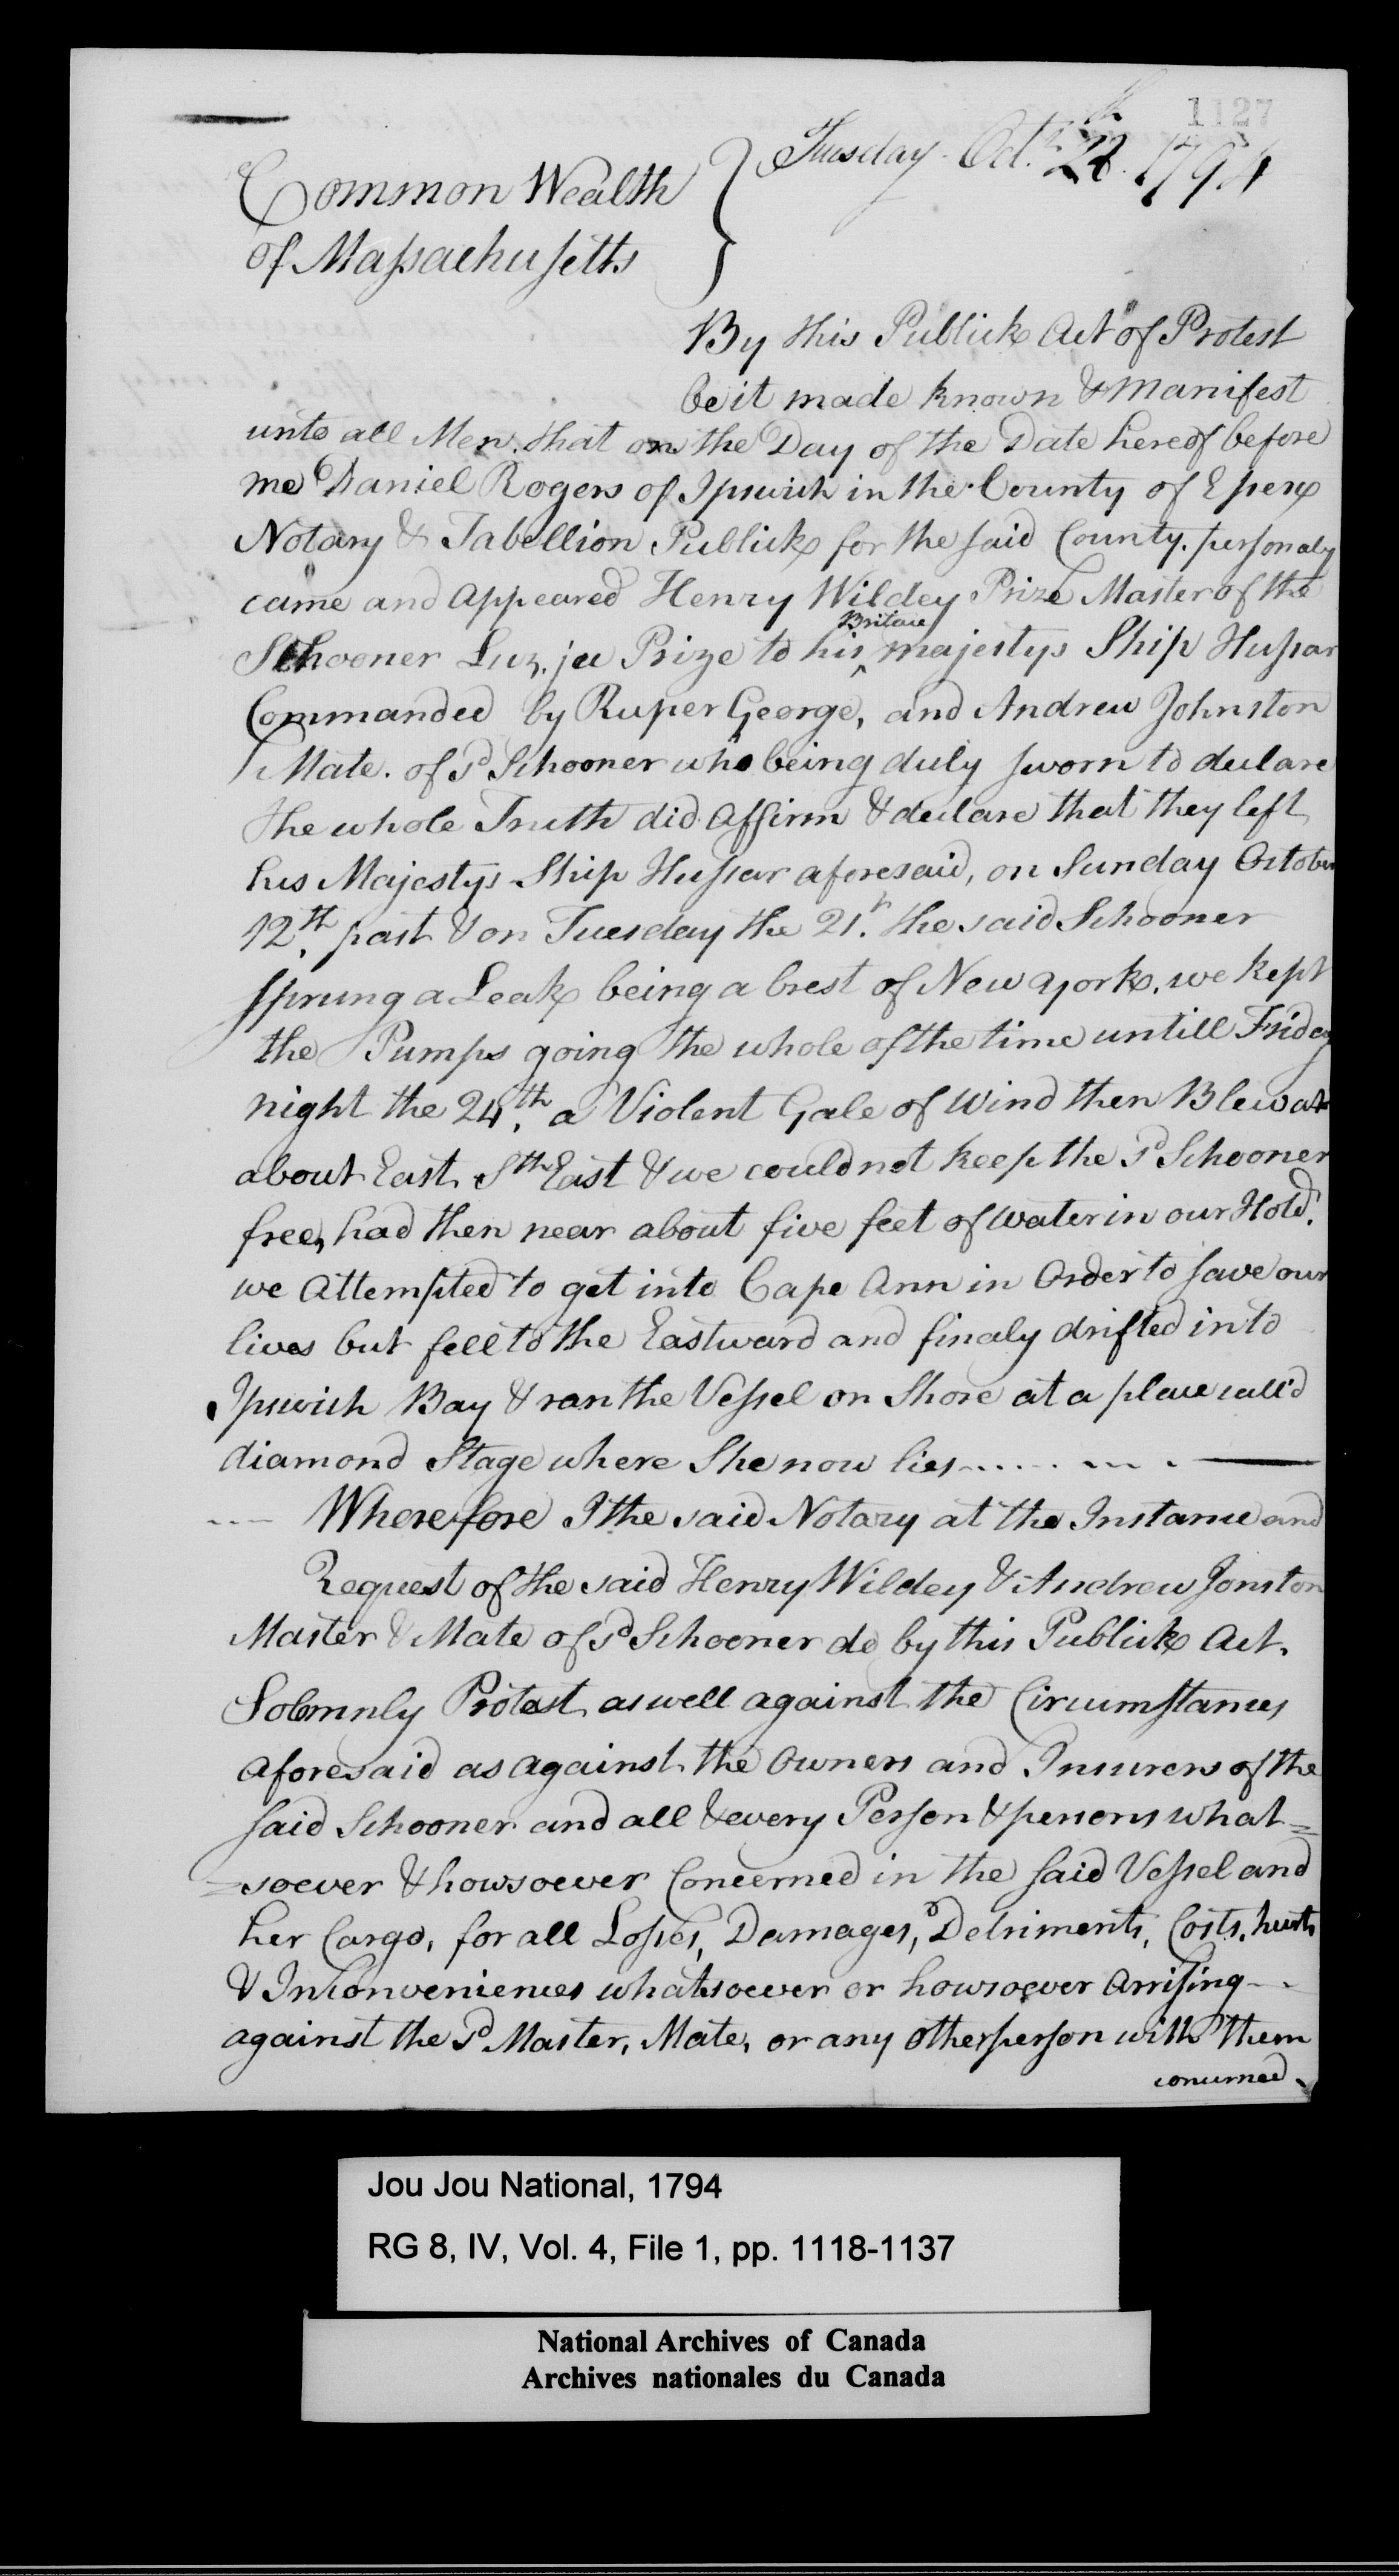 1127
Tuesday Oct.r 28th 1794
Common Wealth
of Massachusetts
By this Publick Act of Protest
be it made known & Manifest
unto all Men, that on the Day of the Date hereof before
me Daniel Rogers of Ipswich in the County of Essex
Notary & Tabellion Publick for the said County. personaly
came and Appeared Henry Wildey Prize Master of the
Britanc
Schooner Luz, ju Prize to his ^ majestys Ship Hussar
Commanded by Ruper George, and Andrew Johnston
Mate. of sd Schooner who being duly sworn to declare
the whole Truth did Affirm & declare that they left
his Majestys Ship Hussar aforesaid, on Sunday October
12.th past & on Tuesday the 21.t the said Schooner
sprung a Leak being a brest of New york. we kept
the Pumps going the whole of the time untill Friday
night the 24.th a Violent Gale of Wind then Blew at
about East Sth East & we could not keep the sd Schooner
free, had then near about five feet of water in our Hold.
we Attempted to get into Cape Ann in Order to save our
lives but fell to the Eastward and finaly drifted into
Ipswich Bay & ran the Vessel on Shore at a place call'd
diamond Stage where She now lies
Wherefore I the said Notary at the Instance and
Request of the said Henry Wildey & Andrew Jonston
Master & Mate of sd Schooner do by this Publick Act.
Solemnly Protest as well against the Circumstances
aforesaid as against the Owners and Insurers of the
said Schooner and all & every Person & persons what=
=soever & howsoever Concerned in the said Vessel and
her Cargo, for all Losses, Damages, Detriments, Costs, hurts
& Inconveniences whatsoever or howsoever Arrising
against the sd Master, Mate, or any other person with them
concerned.
Jou Jou National, 1794
RG 8, IV, Vol. 4, File 1, pp. 1118-1137
National Archives of Canada
Archives nationales du Canada